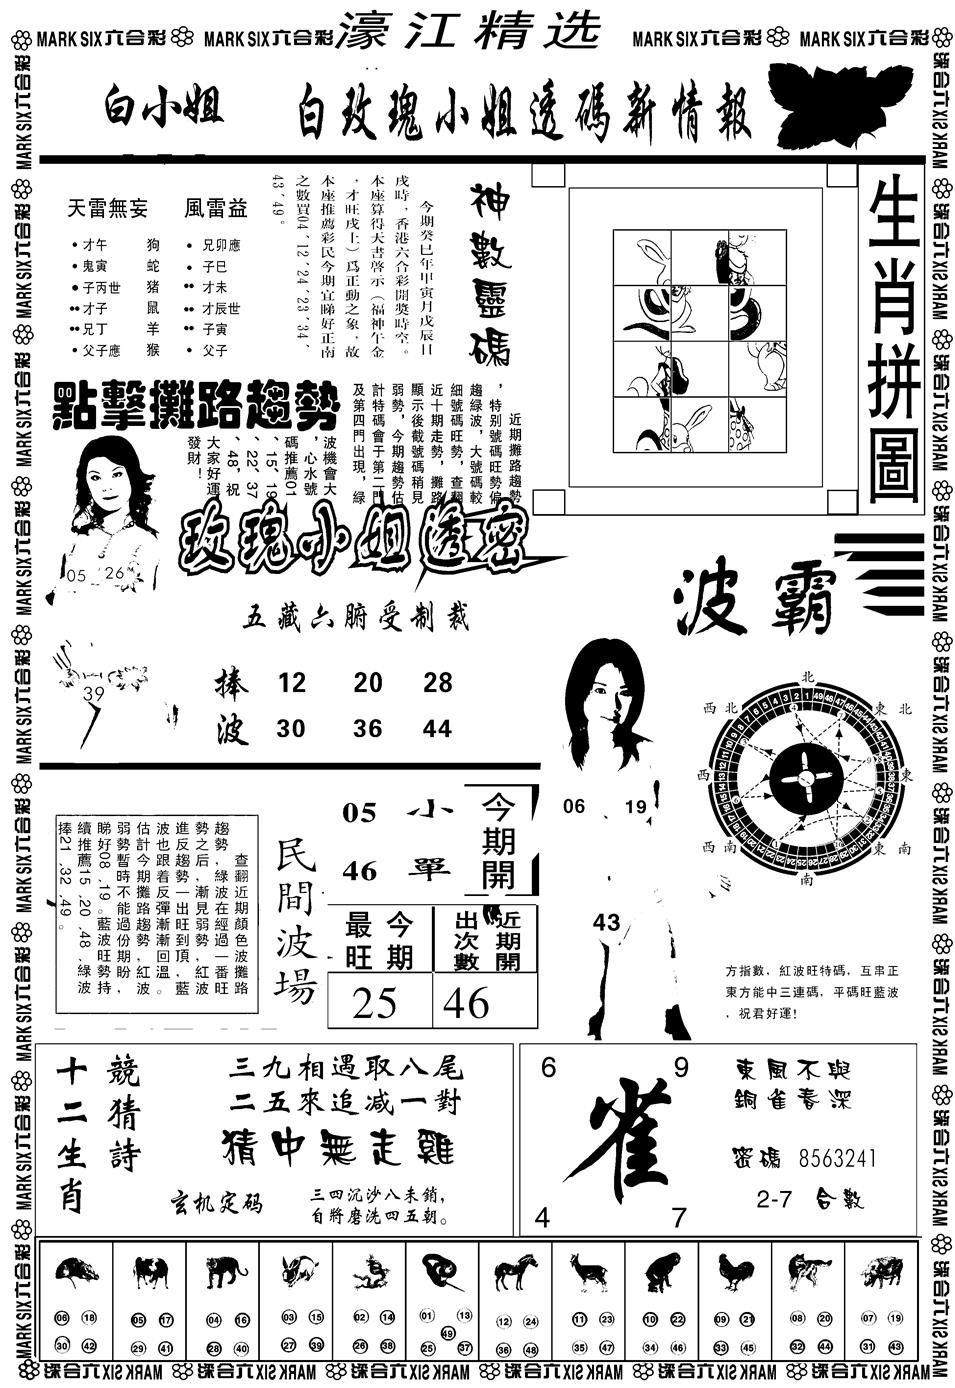 MARK SIX六合彩 MARK SIX六合彩 濠江精选 MARK SIX六合彩 MARK SIX六合彩
白小姐 白玫瑰小姐透碼新情報
天雷無妄 風雷益
才午 狗 兄卯應
鬼寅 蛇 子巳
子丙世 猪 才未
才子 鼠 才辰世
兄丁 羊 子寅
父子應 猴 父子
神數靈碼
今期癸巳年甲寅月戊辰日
戌時，香港六合彩開獎時空。
本座算得天書啓示（福神午金
，才旺戌上）爲正動之象，故
本座推薦彩民今期宜睇好正南
之數買04、12、24、23、34、
43、49。
生肖拼圖
點擊攤路趨勢
近期攤路趨勢
，特别號碼旺勢偏
趨緑波，大號碼較
細號碼旺勢，查翻
近十期走勢，攤路
顯示後截號碼稍見
弱勢，今期趨勢估
計特碼會于第二門
及第四門出現，緑
波機會大
，心水號
碼推薦01
、15、19
、22、37
、48，祝
大家好運
發財！
玫瑰小姐透密
05 26
39
五藏六腑受制裁
捧波
12 20 28
30 36 44
波霸
06 19
43
北
西北 東北
西 東
西南 東南
南
方指數，紅波旺特碼，互串正
東方能中三連碼，平碼旺藍波
，祝君好運！
查翻近期顔色波攤路
趨勢，緑波在經過一番旺
勢之后，漸見弱勢，紅波
進反趨勢一出旺到頂，藍
波也跟着反彈漸漸回溫。
估計今期攤路趨勢，紅波
弱勢暫時不能過份期盼，
睇好08、19。藍波旺勢持
續推薦15、20、48，緑波
捧21、32、49。
民間波場
05 小
46 單
今期開
今期最旺
近期開出次數
25 46
十二生肖
競猜詩
三九相遇取八尾
二五來追减一對
猜中無走雞
玄机定码
三四沉沙八未銷，
自將磨洗四五朝。
6 9
雀
4 7
東風不與
銅雀春深
密碼 8563241
2-7 合數
06 18 30 42
05 17 29 41
04 16 28 40
03 15 27 39
02 14 26 38
01 13 49 25 37
12 24 36 48
11 23 35 47
10 22 34 46
09 21 33 45
08 20 32 44
07 19 31 43